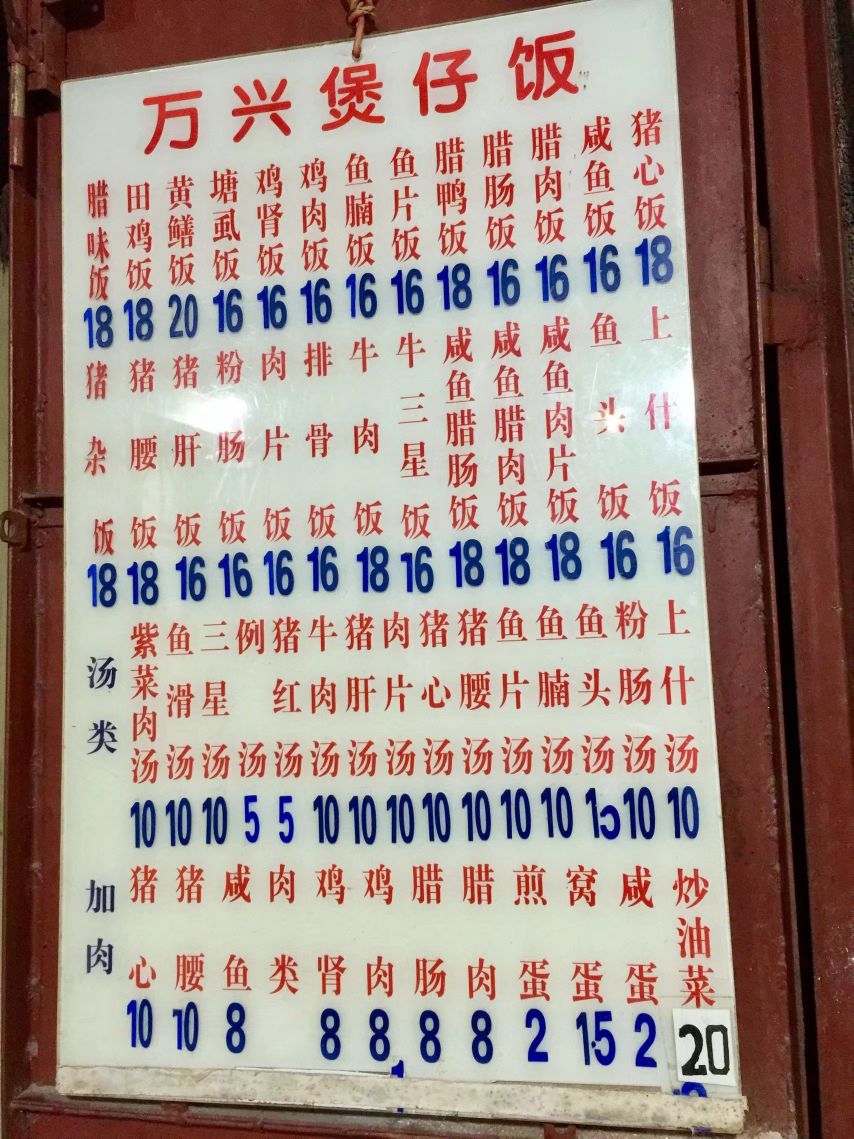 万兴煲仔饭
腊味饭 18
田鸡饭 18
黄鳝饭 20
塘虱饭 16
鸡肾饭 16
鸡肉饭 16
鱼腩饭 16
鱼片饭 16
腊鸭饭 18
腊肠饭 16
腊肉饭 16
咸鱼饭 16
猪心饭 18
猪杂饭 18
猪腰饭 18
猪肝饭 16
粉肠饭 16
肉片饭 16
排骨饭 16
牛肉饭 18
牛三星饭 16
咸鱼腊肠饭 18
咸鱼腊肉饭 18
咸鱼肉片饭 18
鱼头饭 16
上什饭 16
汤类
紫菜肉汤 10
鱼滑汤 10
三星汤 10
例汤 5
猪红汤 5
牛肉汤 10
猪肝汤 10
肉片汤 10
猪心汤 10
猪腰汤 10
鱼片汤 10
鱼腩汤 10
鱼头汤
粉肠汤 10
上什汤 10
加肉
猪心 10
猪腰 10
咸鱼 8
肉类
鸡肾 8
鸡肉 8
腊肠 8
腊肉 8
煎蛋 2
窝蛋 1.5
咸蛋 2
炒油菜 20